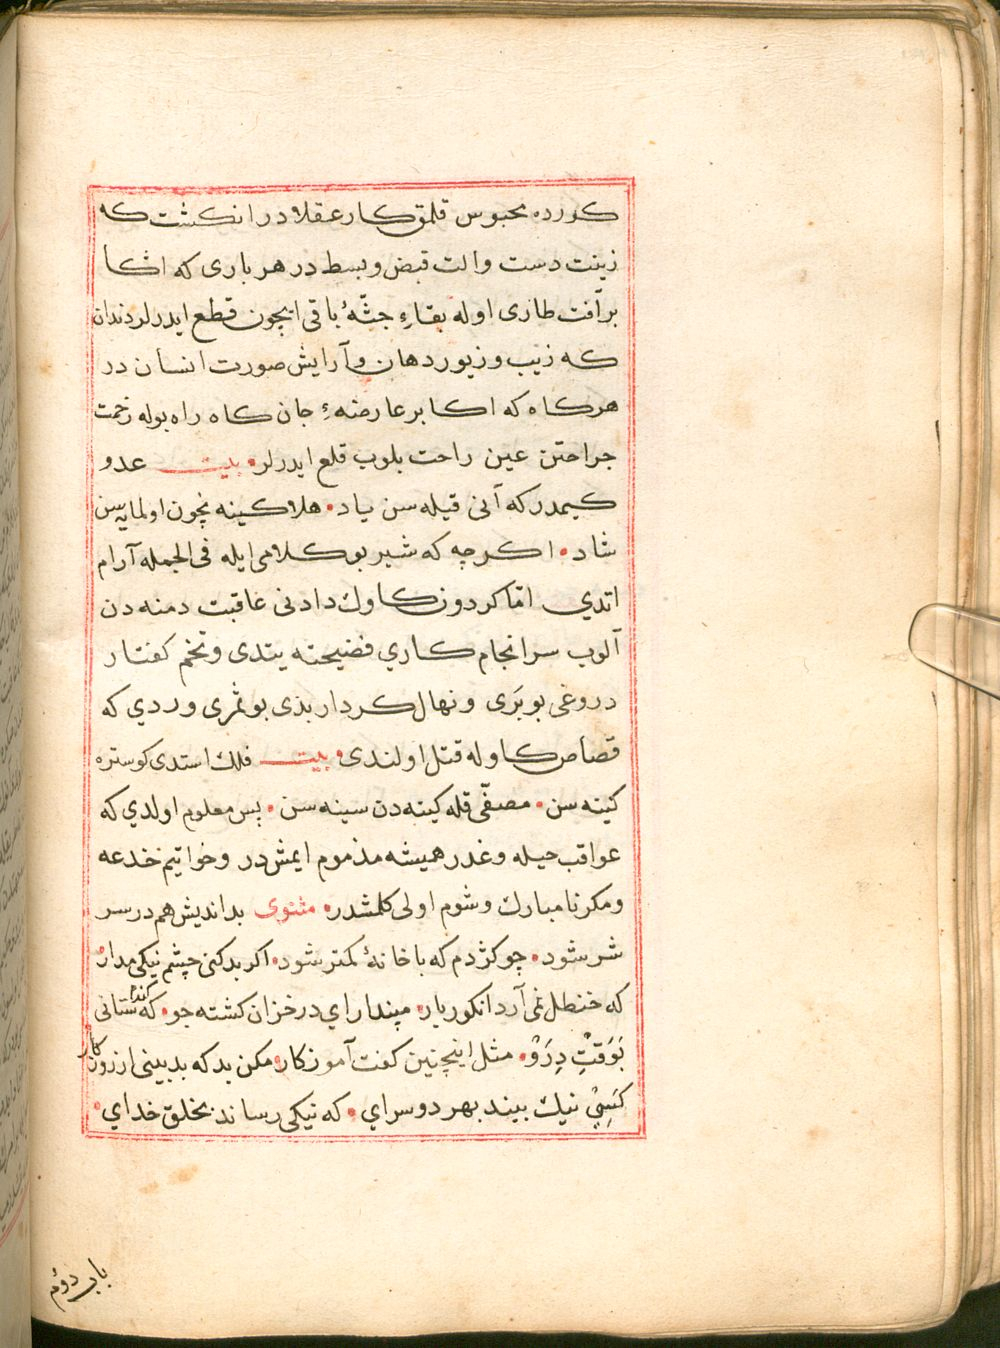 كورده محبوس قلمق كار عقلادر انكشت كه
زينت دست والت قبض وبسط در هر بارى كه اڭا
بر آفت طارى اوله بقاءِ جثّهٔ باقى ايچون قطع ايدرلر دندان
كه زيب وزيور دهان وآرايش صورت انسان در
هركاه كه اڭا بر عارضهءِ جان كاه راه بوله زحمت
جراحتن عين راحت بلوب قلع ايدرلر بيت عدو
كيمدر كه آنى قيله سن ياد هلاكينه نچون اولمايه سن
شاد اكرچه كه شير بو كلامى ايله فى الجمله آرام
اتدي امّا كردون كاوك دادنى عاقبت دمنه دن
آلوب سرانجام كاري فضيحته يتدى وتخم كفتار
دروغى بو بَرَى ونهال كردار بذى بو ثمرى وردي كه
قصاص كاوله قتل اولندى بيت فلك استدى كوستره
كينه سن مصفّى قله كينه دن سينه سن پس معلوم اولدي كه
عواقب حيله وغدر هميشه مذموم ايمش در وخواتيم خدعه
ومكر نامبارك وشوم اولى كلمشدر مثنوى بدانديش هم در سر
شر شود چو كژدم كه با خانهٔ كمتر شود اكر بد كنى چشم نيكى مدار
كه حنظل نمى آرد انكور بار مپندار اي در خزان كشته جو كه كندم ستانى
بَوَقتِ دِرَوْ مثل اينچنين كفت آموزكار مكن بد كه بد بينى از روزكار
كَسِى نيك بيند بهر دو سراي كه نيكى رساند بخلق خداي
باب دوّم